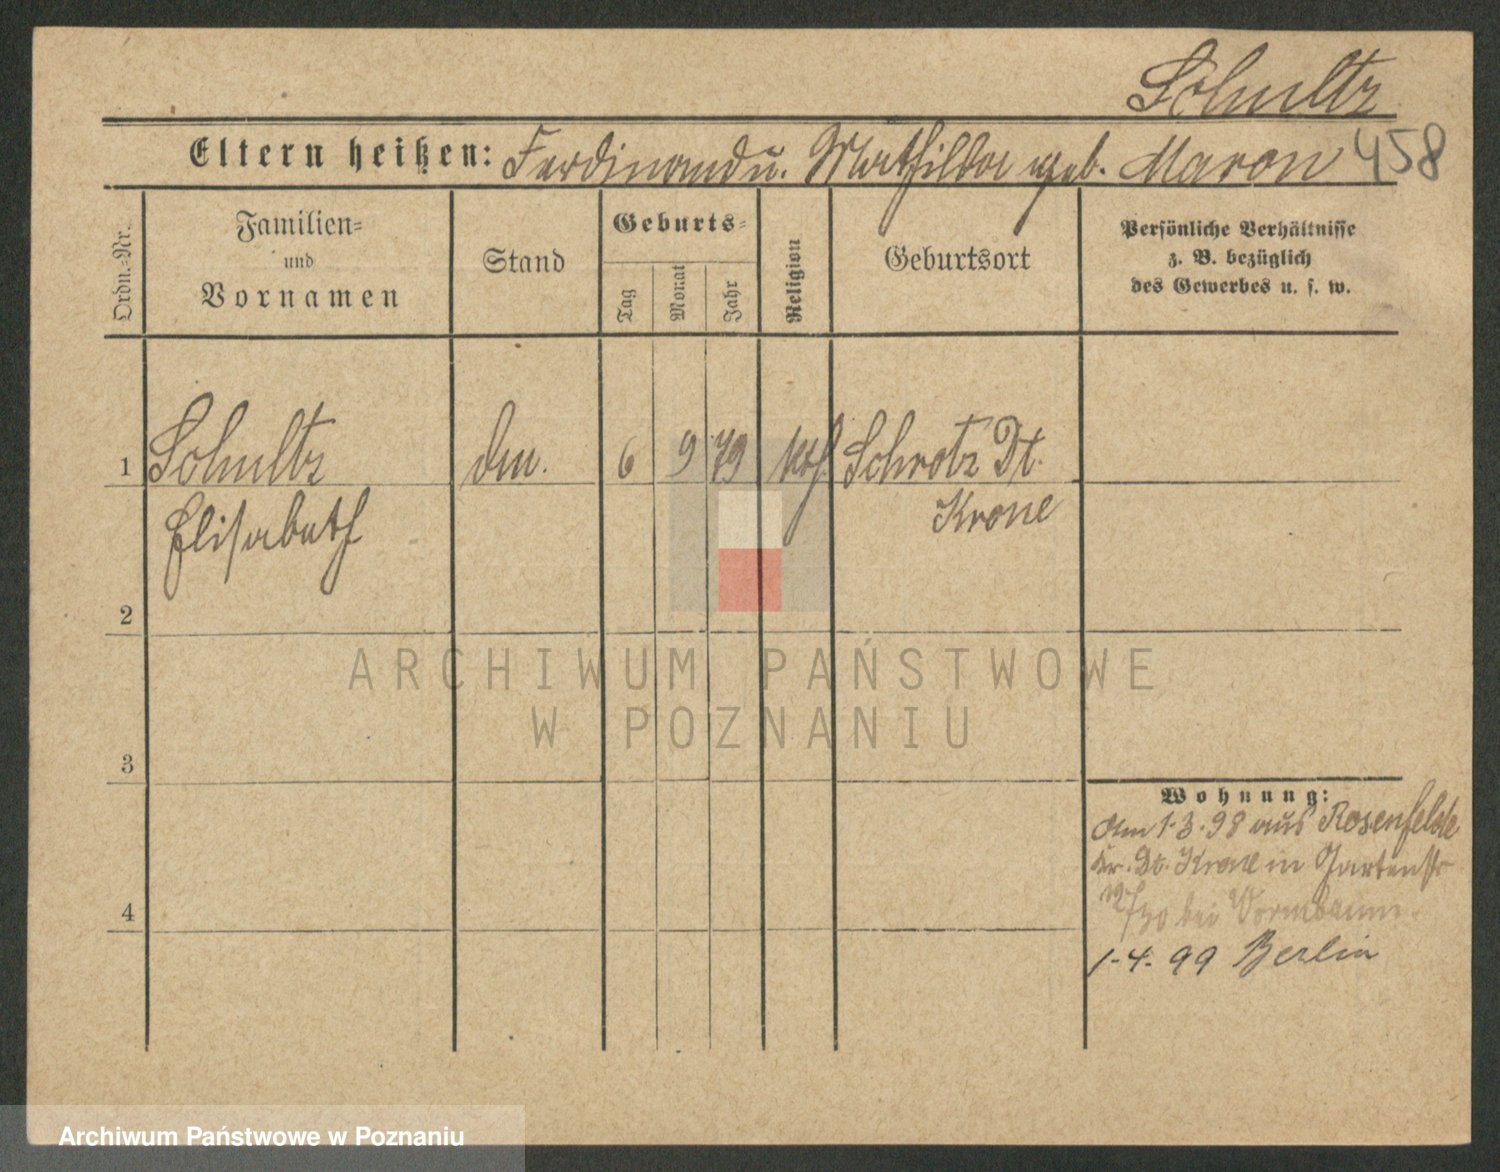 Schultz
Eltern heißen: Ferdinand u. Mathilde geb. Maron 458
Ordn.-Nr.
Familien-
und
Vornamen
Stand
Geburts-
Tag
Monat
Jahr
Religion
Geburtsort
Persönliche Verhältnisse
z. B. bezüglich
des Gewerbes u. s. w.
1 Schultz 6 9 79 kth Schrotz Dt.
Elisabeth Krone
2
ARCHIWUM PAŃSTWOWE
W POZNANIU
3
Wohnung:
Am 1.3.98 aus Rosenfelde
Kr. Dt. Krone in Gartenstr
bei Vormbaum
4
1-4-99 Berlin
Archiwum Państwowe w Poznaniu